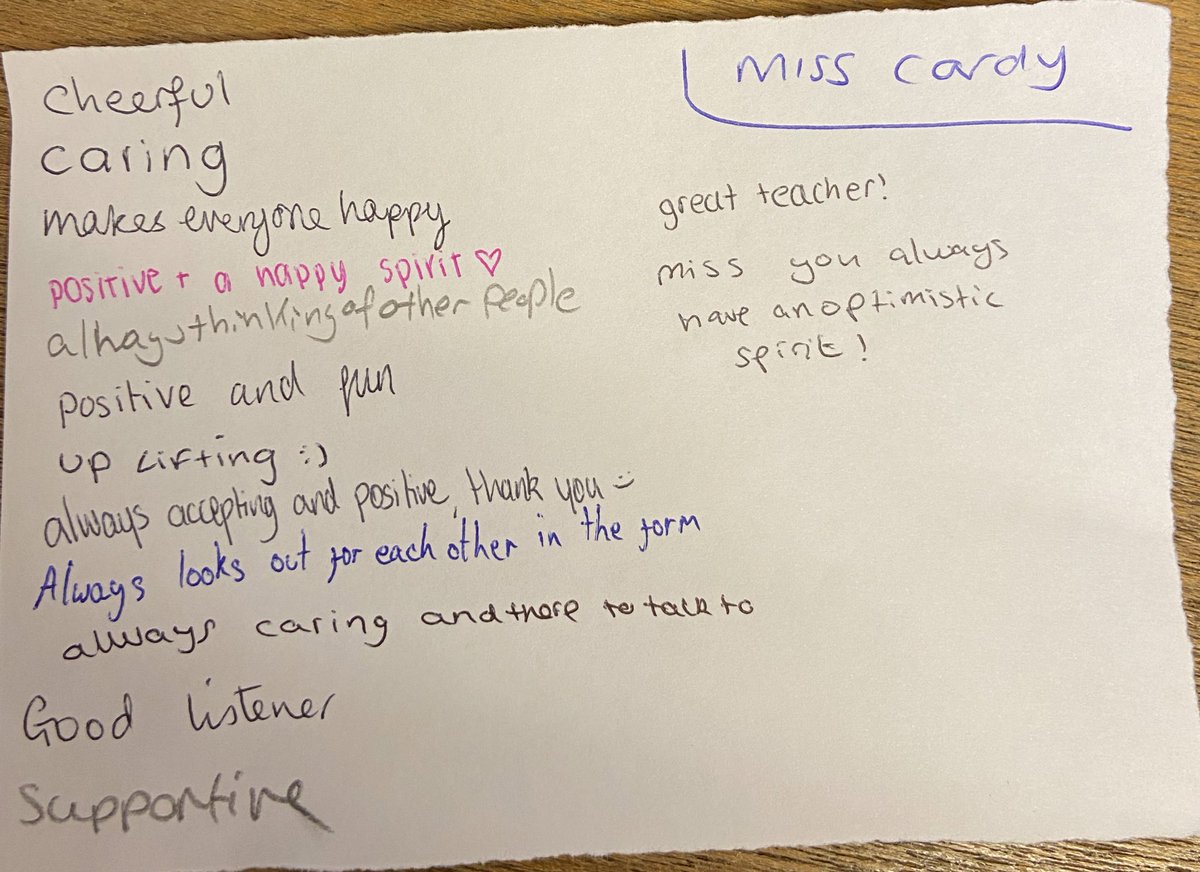 Miss Cardy
cheerful
caring
makes everyone happy
positive + a happy spirit ♡
alhays thinking of other people
positive and fun
up lifting :)
always accepting and positive, thank you :)
Always looks out for each other in the form
always caring and there to talk to
Good listener
supportive
great teacher!
miss you always
have an optimistic
spirit!